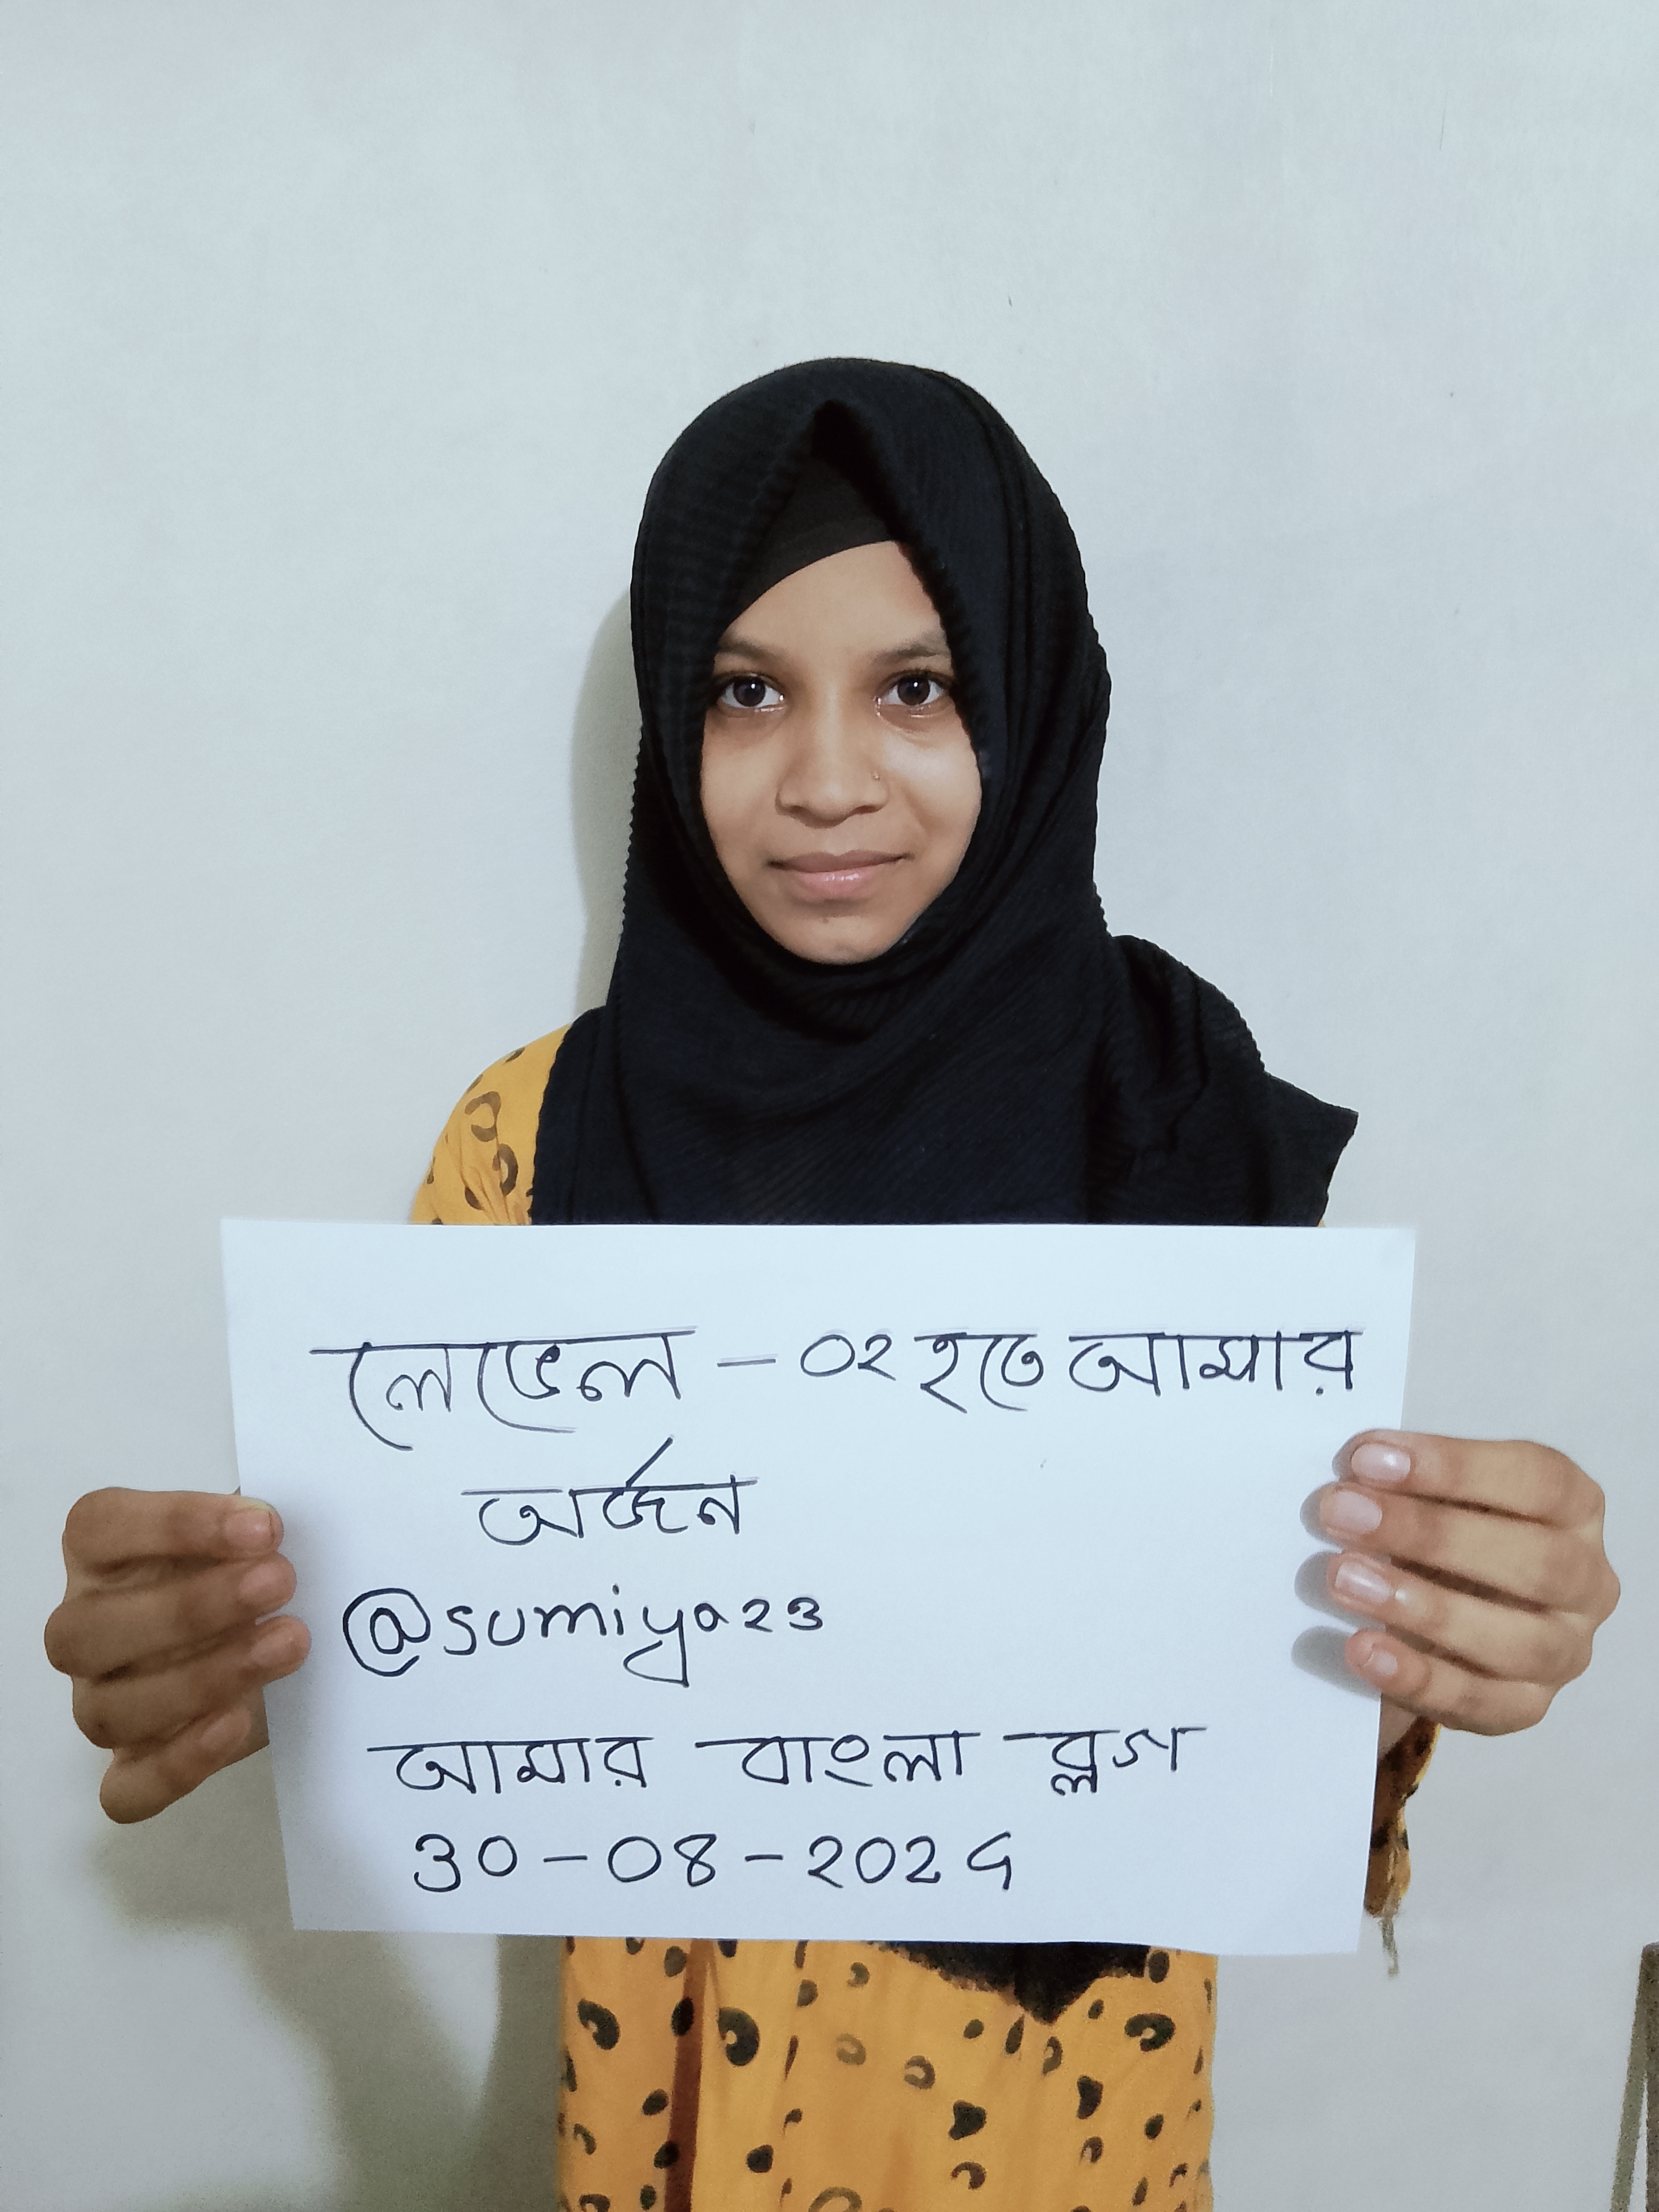 লেভেল - ০২ হতে আমার
অর্জন
@sumiya23
আমার বাংলা ব্লগ
30-08-2024